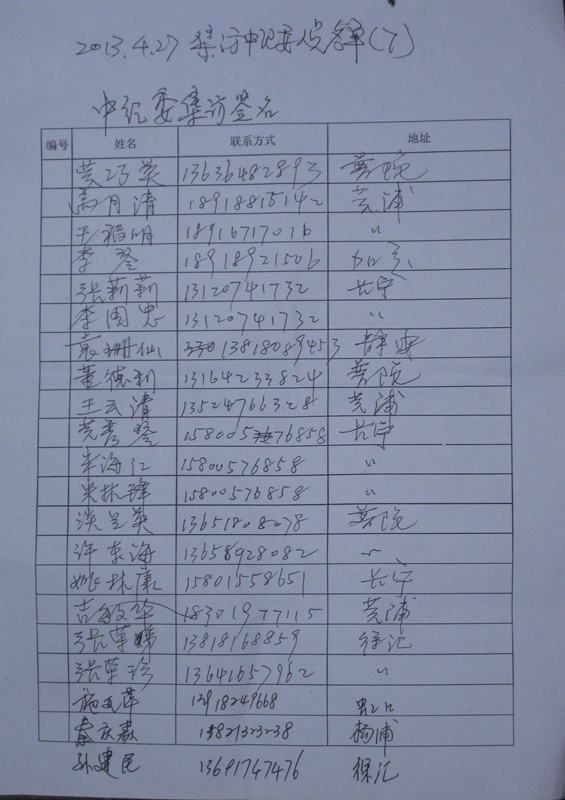 2013.4.27 集访中纪委人员名单(7)
中纪委集访签名
编号 姓名 联系方式 地址
黄巧英 13636482893 普陀
高月清 18918815142 黄浦
王瑞明 18916717016 〃
李琴 18918921506
张莉莉 13120741732 长宁
李国忠 13120741732 〃
袁珊仙 13818089453 静安
董德利 13164233824 普陀
王云清 13524766328 黄浦
158005 76858 长宁
海江 15800576858 〃
林锋 15800576858 〃
13651808078 普陀
许东海 13658928082 〃
姚林康 15801558651 长宁
吉敏华 18301977115 黄浦
张革娣 13818168859 徐汇
张革珍 13641657962 〃
施 萍 13918249668 虹口
秦 森 15821323238 杨浦
孙建民 13691747476 徐汇